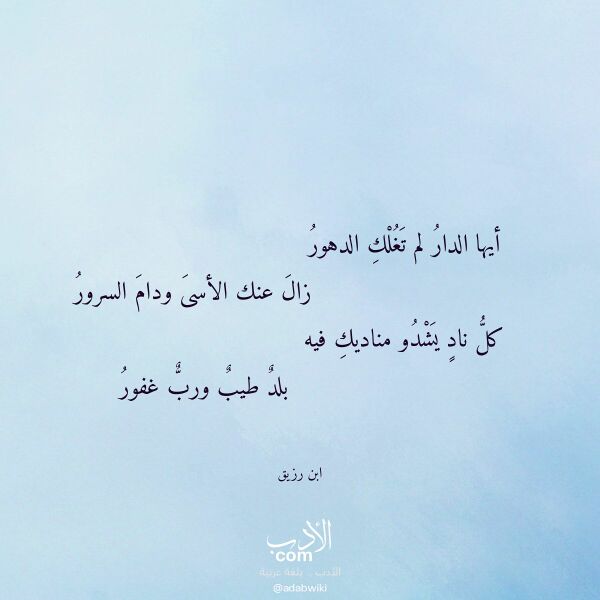 أيها الدارُ لم تَغُلْكِ الدهورُ
زالَ عنك الأسىَ ودامَ السرورُ
كلُّ نادٍ يَشْدُو مناديكِ فيه
بلدٌ طيبٌ وربٌّ غفورُ
ابن رزيق
الأدب
com
الأدب .. بلغة عربية
@adabwiki